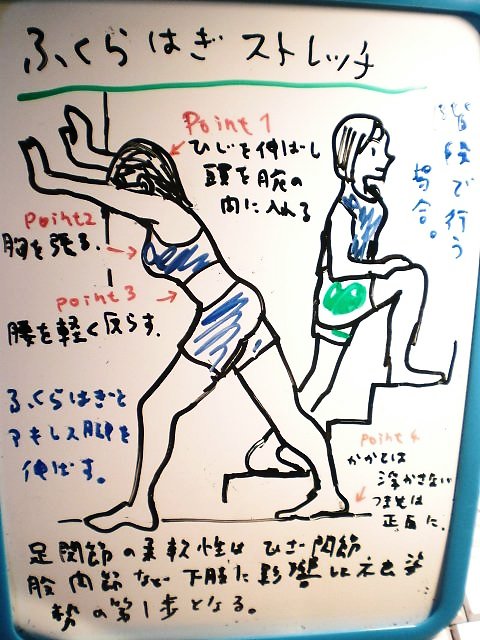 ふくらはぎストレッチ
Point 1
ひじを伸ばし
頭を腕の
内に入れる
階段で行う
場合。
Point2
胸を張る.
point 3
腰を軽く反らす.
ふくらはぎと
アキレス腱を
伸ばす。
Point 4
かかとは
浮かさない
つま先は
正面に.
足関節の柔軟性はひざ関節
股関節など下肢に影響し
の第1歩となる。